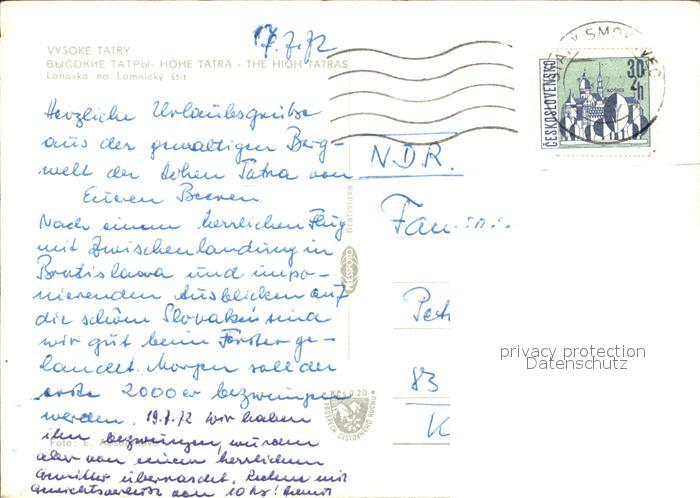 17.7.72
VYSOKÉ TATRY
ВЫСОКИЕ ТАТРЫ · HOHE TATRA · THE HIGH TATRAS
Lanovka na Lomnický štít
Herzliche Urlaubsgrüße
aus der gewaltigen Berg-
welt der Hohen Tatra von
Euren
Nach einem herrlichen Flug
mit Zwischenlandung in
Bratislava und impo-
nierenden Ausblicken auf
die schöne Slovakei sind
wir gut beim Förster ge-
landet. Morgen soll der
erste 2000er bezwungen
werden. 19.7.72 Wir haben
ihn bezwungen, wurden
aber von einem herrlichen
Gewitter überrascht. mit
von 10
Foto: E.
Bratislava
Kčs 0,20
ČESKOSLOVENSKO
30 h
KOŠICE
SMOKOVEC
NDR.
Fam
Pet
83
K
privacy protection
Datenschutz